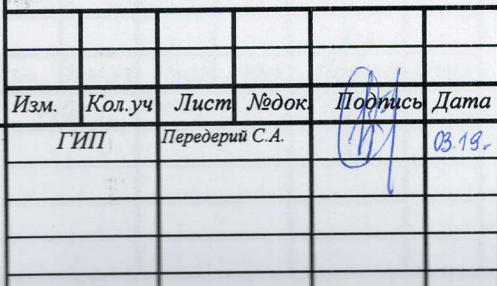 Изм. Кол.уч Лист №док. Подпись Дата
ГИП Передерий С.А. 03.19.